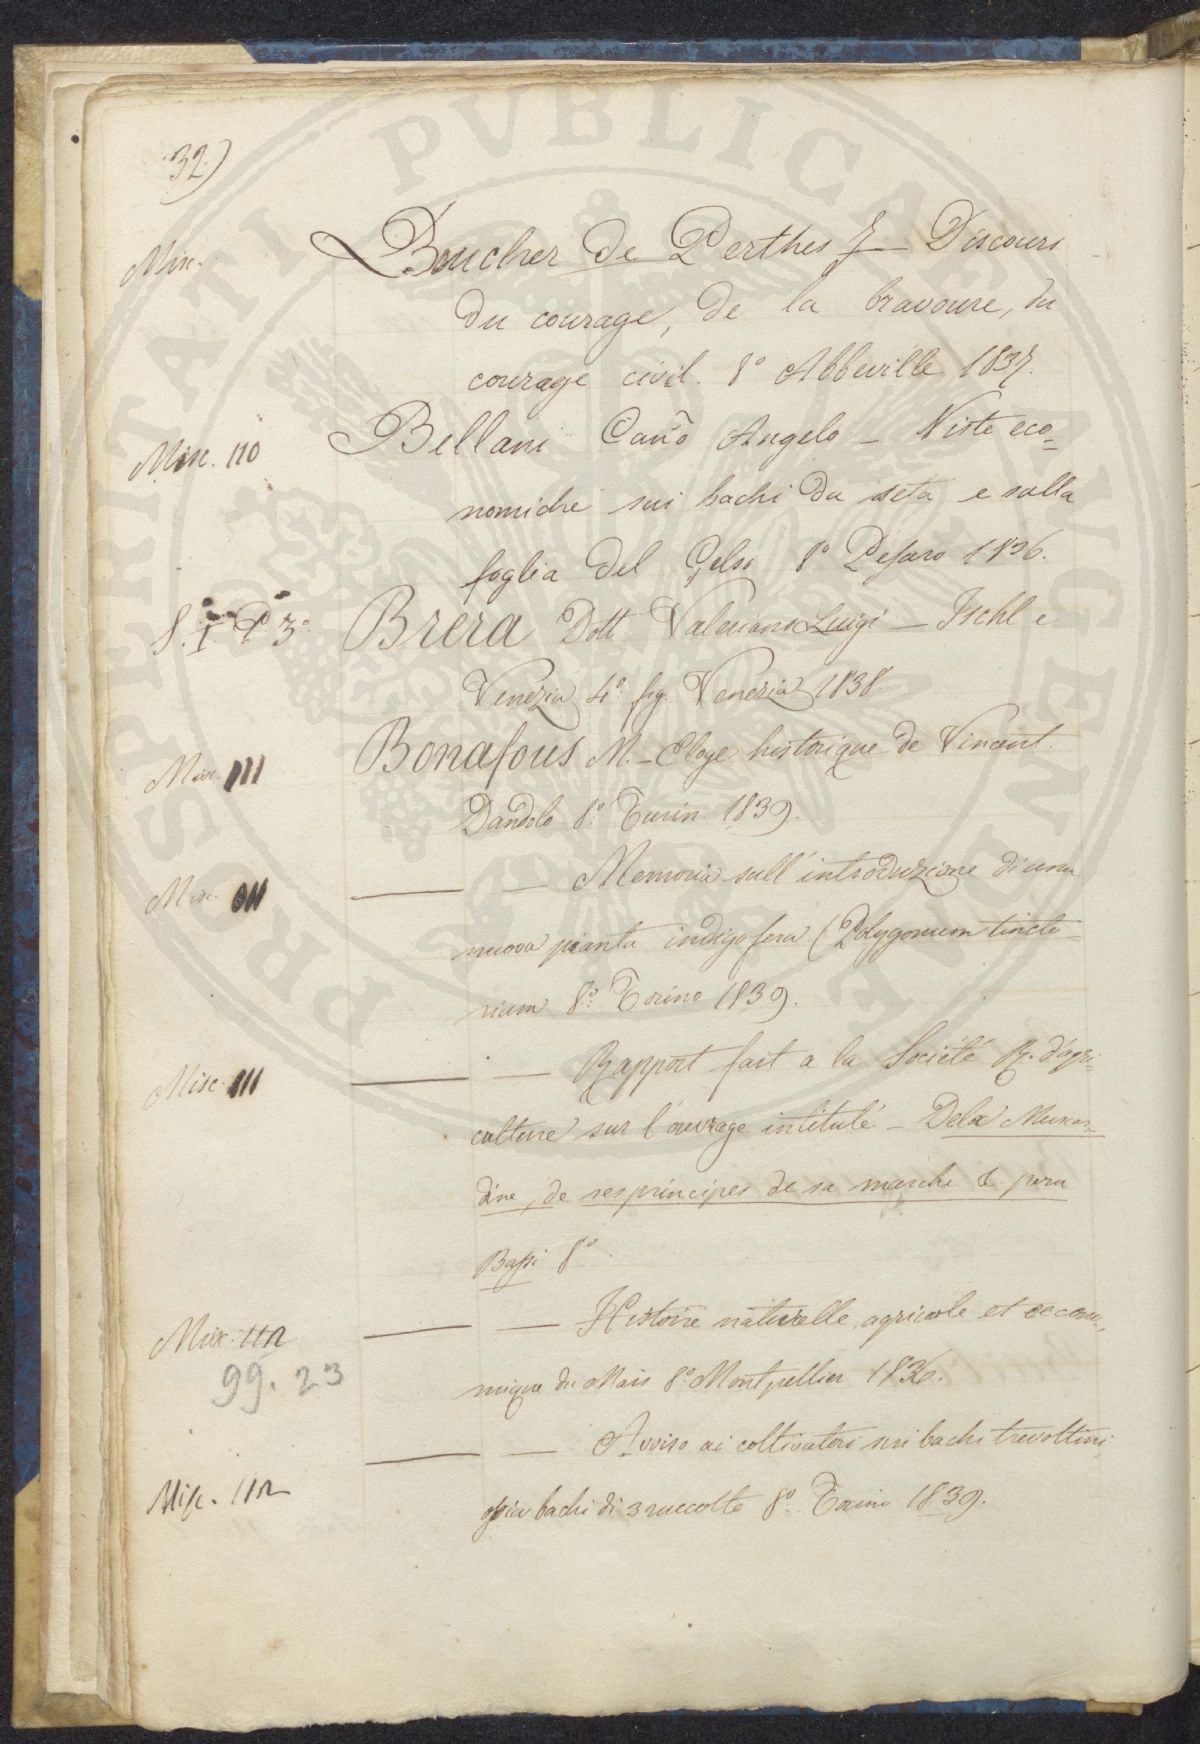 32.)
Misc.
Boucher de Perthes J — Discours
du courage, de la bravoure, du
courage civil. 8° Abbeville 1837.
Misc. 110
Bellani Cañō Angelo — Viste eco=
nomiche sui bachi da seta e sulla
foglia del Gelso 8° Pesaro 1836.
S. I. P 3°
Brera Dott. Valeriano Luigi — Ischl e
Venezia 4° fig. Venezia 1838.
Misc. 111
Bonafous M. — Eloge historique de Vincent
Dandolo 8° Turin 1839.
Misc. 111
— — Memoria sull'introduzione di una
nuova pianta indigofera (Polygonum tincto=
rium 8° Torino 1839.
Misc. 111
— — Rapport fait a la Société R. d'agri=
culture sur l'ouvrage intitulé — Dela Muscar=
dine, de ses principes de sa marche &
Bassi 8°
Misc. 112
99. 23
— — Histoire naturelle, agricole et oecono=
mique du Mais 8° Montpellier 1836.
Misc. 112
— — Avviso ai coltivatori sui bachi trevoltini,
ossia bachi di 3 raccolte 8° Torino 1839.
PROSPERITATI PVBLICAE AVGENDAE